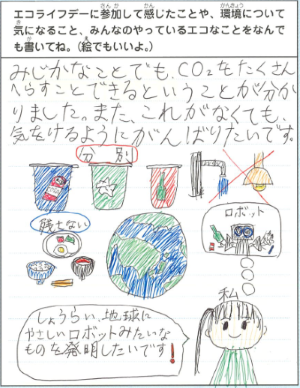 エコライフデーに参加して感じたことや、環境について
気になること、みんなのやっているエコなことをなんで
も書いてね。（絵でもいいよ。）
みじかなことでも、CO2をたくさん
へらすことできるということが分か
りました。また、これがなくても、
気をけるようにがんばりたいです。
分別
残さない
ロボット
私
しょうらい、地球に
やさしいロボットみたいな
ものを発明したいです!